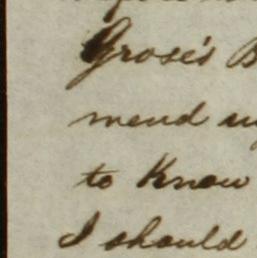 Grose's B
mend
to Know
I should